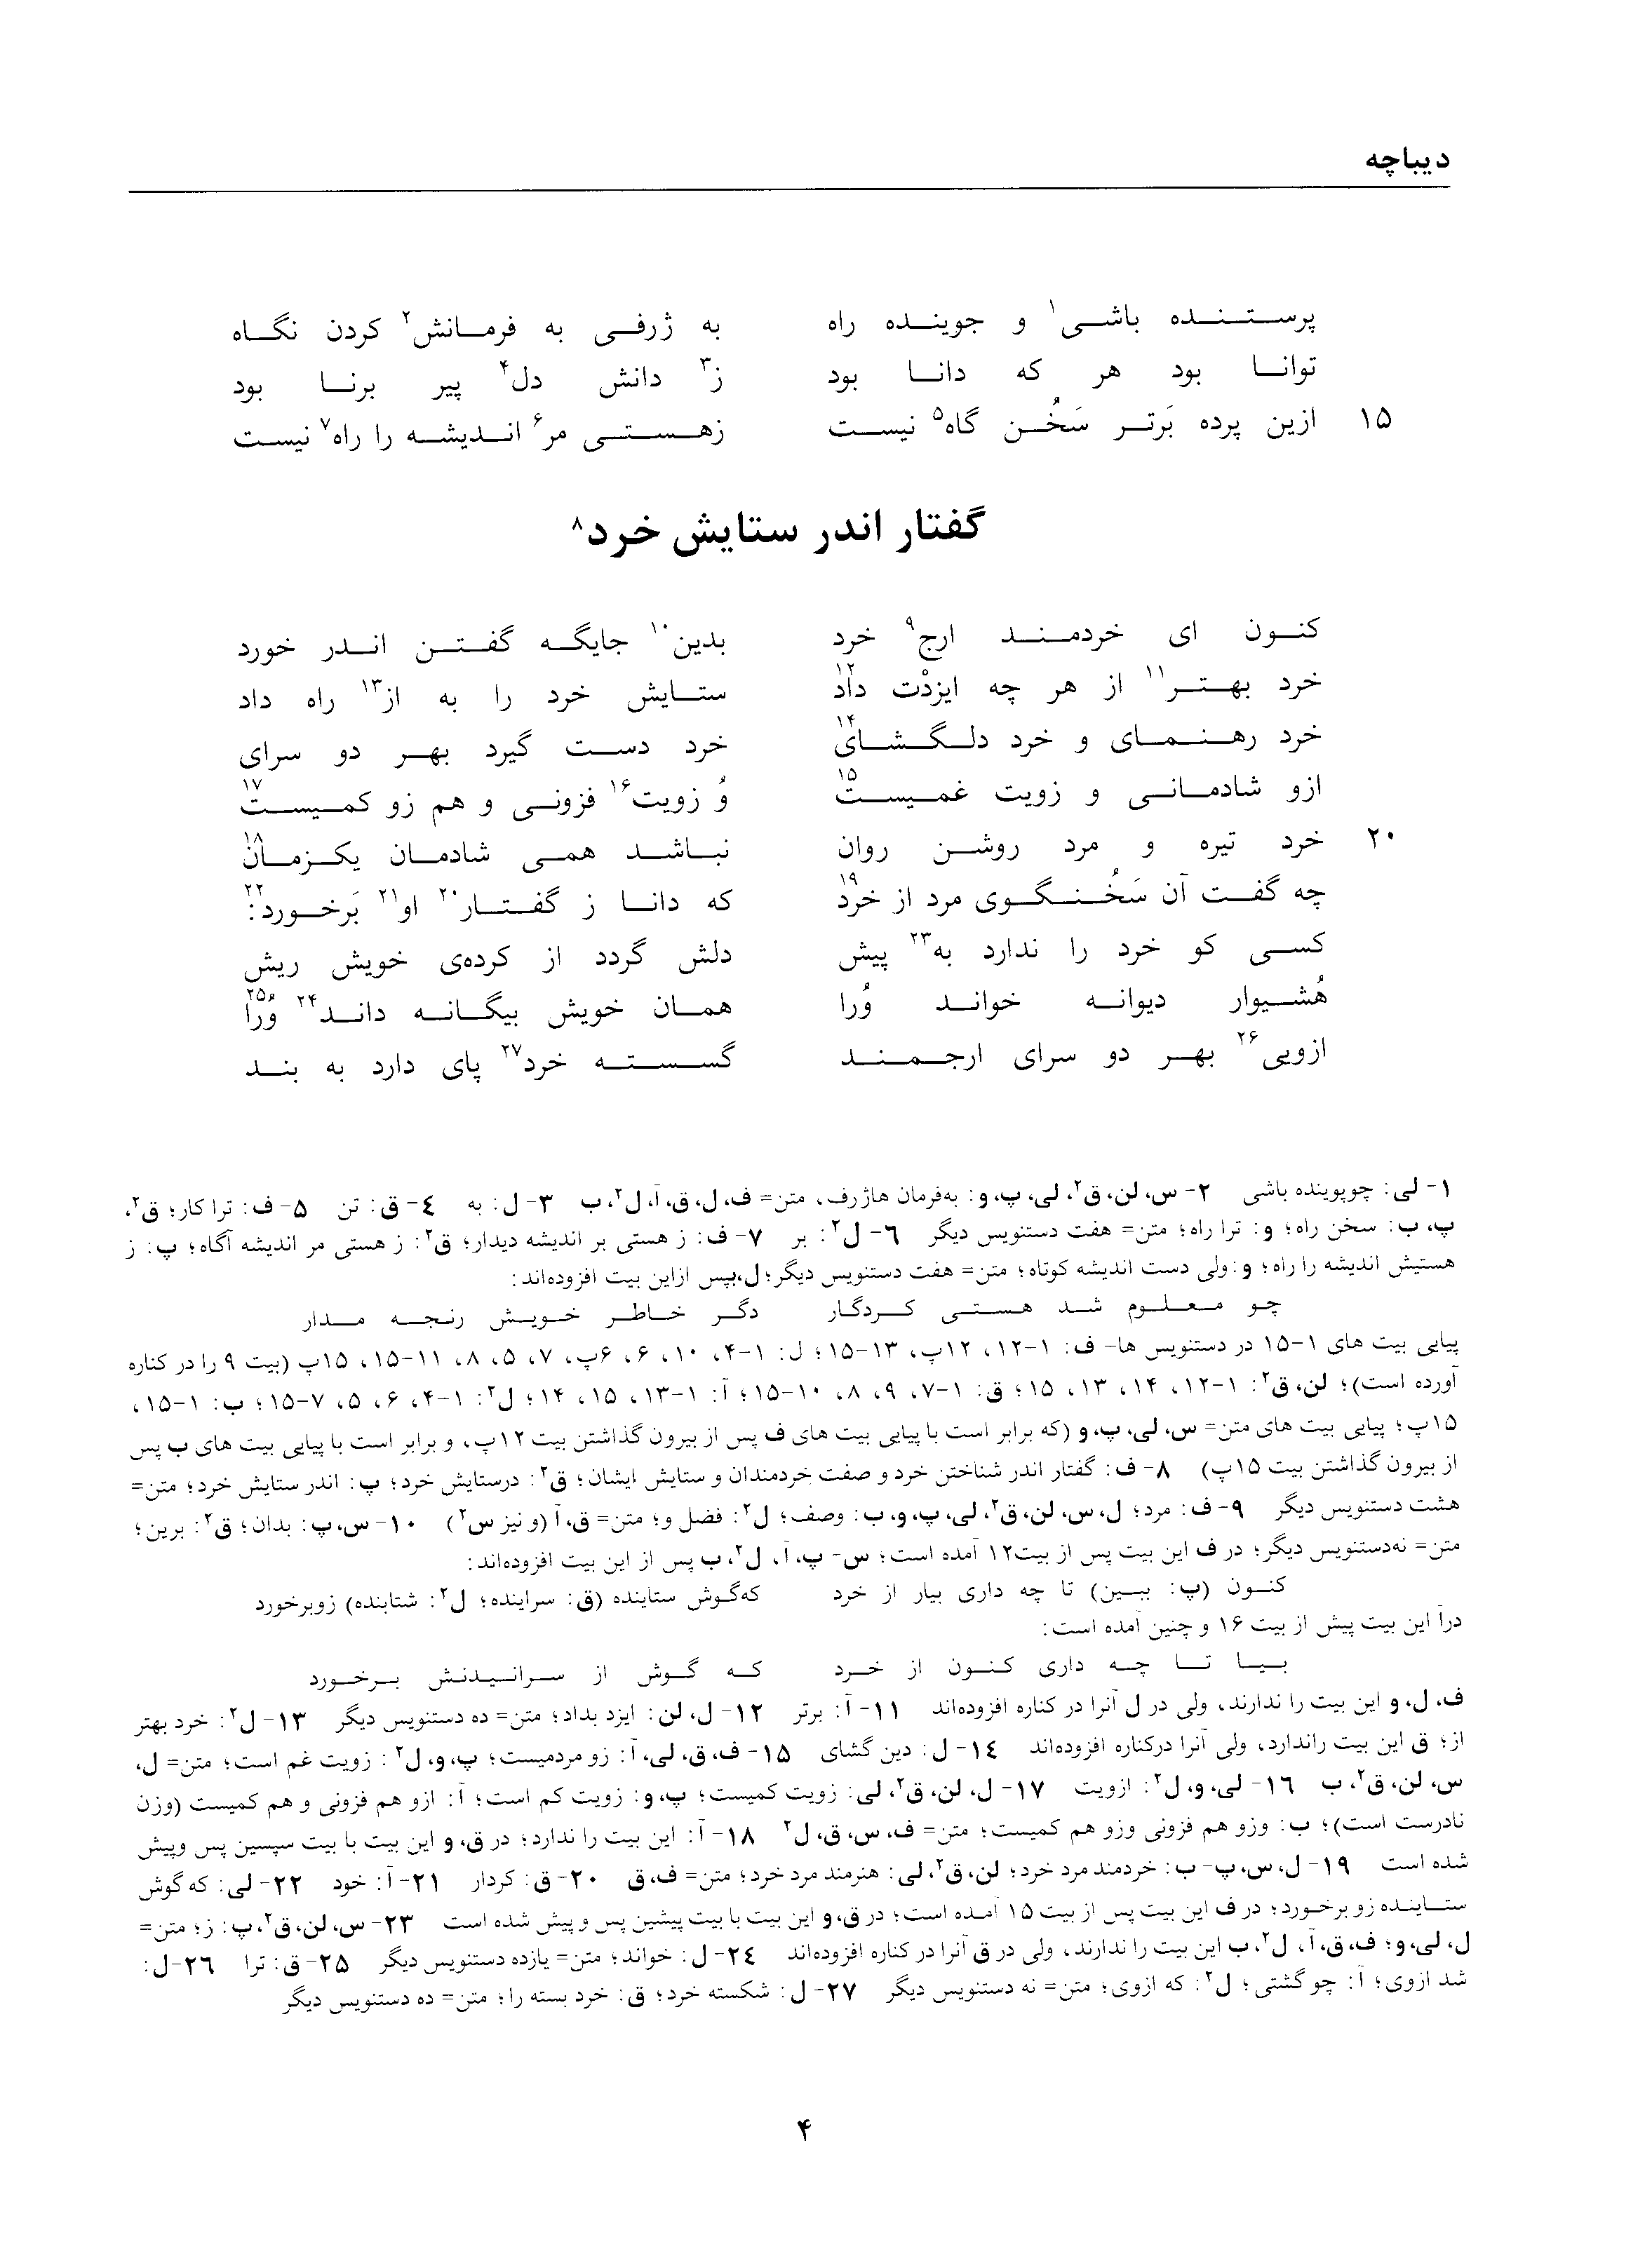 دیباچه
پرستنده باشی۱ و جوینده راه به ژرفی به فرمانش۲ کردن نگاه
توانا بود هر که دانا بود ز۳ دانش دل۴ پیر برنا بود
۱۵ ازین پرده بَرتر سَخُن گاه۵ نیست زهستی مر۶ اندیشه را راه۷ نیست
گفتار اندر ستایش خرد۸
کنون ای خردمند ارج۹ خرد بدین۱۰ جایگه گفتن اندر خورد
خرد بهتر۱۱ از هر چه ایزدْت داد۱۲ ستایش خرد را به از۱۳ راه داد
خرد رهنمای و خرد دلگشای۱۴ خرد دست گیرد بهر دو سرای
ازو شادمانی و زویت غمیست۱۵ وُ زویت۱۶ فزونی و هم زو کمیست۱۷
۲۰ خرد تیره و مرد روشن روان نباشد همی شادمان یکزمان۱۸
چه گفت آن سَخُنگوی مرد از خرد۱۹ که دانا ز گفتار۲۰ او۲۱ بَرخورد:۲۲
کسی کو خرد را ندارد به۲۳ پیش دلش گردد از کرده‌ی خویش ریش
هُشیوار دیوانه خواند وُرا همان خویش بیگانه داند۲۴ وُرا۲۵
ازویی۲۶ بهر دو سرای ارجمند گسسته خرد۲۷ پای دارد به بند
۱- لی: چوپوینده باشی ۲- س، لن، ق۲، لی، پ، و: به‌فرمان هاژرف، متن= ف، ل، ق، آ، ل۲، ب ۳- ل: به ۴- ق: تن ۵- ف: ترا کار؛ ق۲،
پ، ب: سخن راه؛ و: ترا راه؛ متن= هفت دستنویس دیگر ۶- ل۲: بر ۷- ف: ز هستی بر اندیشه دیدار؛ ق۲: ز هستی مر اندیشه آگاه؛ پ: ز
هستیش اندیشه را راه؛ و:ولی دست اندیشه کوتاه؛ متن= هفت دستنویس دیگر؛ ل،بپس ازاین بیت افزوده‌اند:
چو معلوم شد هستی کردگار دگر خاطر خویش رنجه مدار
پیایی بیت های ۱-۱۵ در دستنویس ها- ف: ۱-۱۲، ۱۲پ، ۱۳-۱۵؛ ل: ۱-۴، ۱۰، ۶، ۶پ، ۷، ۵، ۸، ۱۱-۱۵، ۱۵پ (بیت ۹ را در کناره
آورده است)؛ لن، ق۲: ۱-۱۲، ۱۴، ۱۳، ۱۵؛ ق: ۱-۷، ۹، ۸، ۱۰-۱۵؛ آ: ۱-۱۳، ۱۵، ۱۴؛ ل۲: ۱-۴، ۶، ۵، ۷-۱۵؛ ب: ۱-۱۵،
۱۵پ؛ پیایی بیت های متن= س، لی، پ، و (که برابر است با پیایی بیت های ف پس از بیرون گذاشتن بیت ۱۲پ، و برابر است با پیایی بیت های ب پس
از بیرون گذاشتن بیت ۱۵پ) ۸- ف: گفتار اندر شناختن خرد و صفت خردمندان و ستایش ایشان؛ ق۲: درستایش خرد؛ پ: اندر ستایش خرد؛ متن=
هشت دستنویس دیگر ۹- ف: مرد؛ ل، س، لن، ق۲، لی، پ، و، ب: وصف؛ ل۲: فضل و؛ متن= ق، آ (و نیز س۲) ۱۰- س، پ: بدان؛ ق۲: برین؛
متن= نه‌دستنویس دیگر؛ در ف این بیت پس از بیت۱۲ آمده است؛ س- پ، آ، ل۲، ب پس از این بیت افزوده‌اند:
کنون (پ: ببین) تا چه داری بیار از خرد که‌گوش ستاینده (ق: سراینده؛ ل۲: شتابنده) زوبرخورد
درآ این بیت پیش از بیت ۱۶ و چنین آمده است:
بیا تا چه داری کنون از خرد که گوش از سرانیدنش برخورد
ف، ل، و این بیت را ندارند، ولی در ل آنرا در کناره افزوده‌اند ۱۱- آ: برتر ۱۲- ل، لن: ایزد بداد؛ متن= ده دستنویس دیگر ۱۳- ل۲: خرد بهتر
از؛ ق این بیت راندارد، ولی آنرا درکناره افزوده‌اند ۱۴- ل: دین گشای ۱۵- ف، ق، لی، آ: زو مردمیست؛ پ، و، ل۲: زویت غم است؛ متن= ل،
س، لن، ق۲، ب ۱۶- لی، و، ل۲: ازویت ۱۷- ل، لن، ق۲، لی: زویت کمیست؛ پ، و: زویت کم است؛ آ: ازو هم فزونی و هم کمیست (وزن
نادرست است)؛ ب: وزو هم فزونی وزو هم کمیست؛ متن= ف، س، ق، ل۲ ۱۸- آ: این بیت را ندارد؛ در ق، و این بیت با بیت سپسین پس وپیش
شده است ۱۹- ل، س، پ- ب: خردمند مرد خرد؛ لن، ق۲، لی: هنرمند مرد خرد؛ متن= ف، ق ۲۰- ق: کردار ۲۱- آ: خود ۲۲- لی: که گوش
ستاینده زو برخورد؛ در ف این بیت پس از بیت ۱۵ آمده است؛ در ق، و این بیت با بیت پیشین پس و پیش شده است ۲۳- س، لن، ق۲، پ: ز؛ متن=
ل، لی، و؛ ف، ق، آ، ل۲، ب این بیت را ندارند، ولی در ق آنرا در کناره افزوده‌اند ۲۴- ل: خواند؛ متن= یازده دستنویس دیگر ۲۵- ق: ترا ۲۶- ل:
شد ازوی؛ آ: چو گشتی؛ ل۲: که ازوی؛ متن= نه دستنویس دیگر ۲۷- ل: شکسته خرد؛ ق: خرد بسته را؛ متن= ده دستنویس دیگر
۴